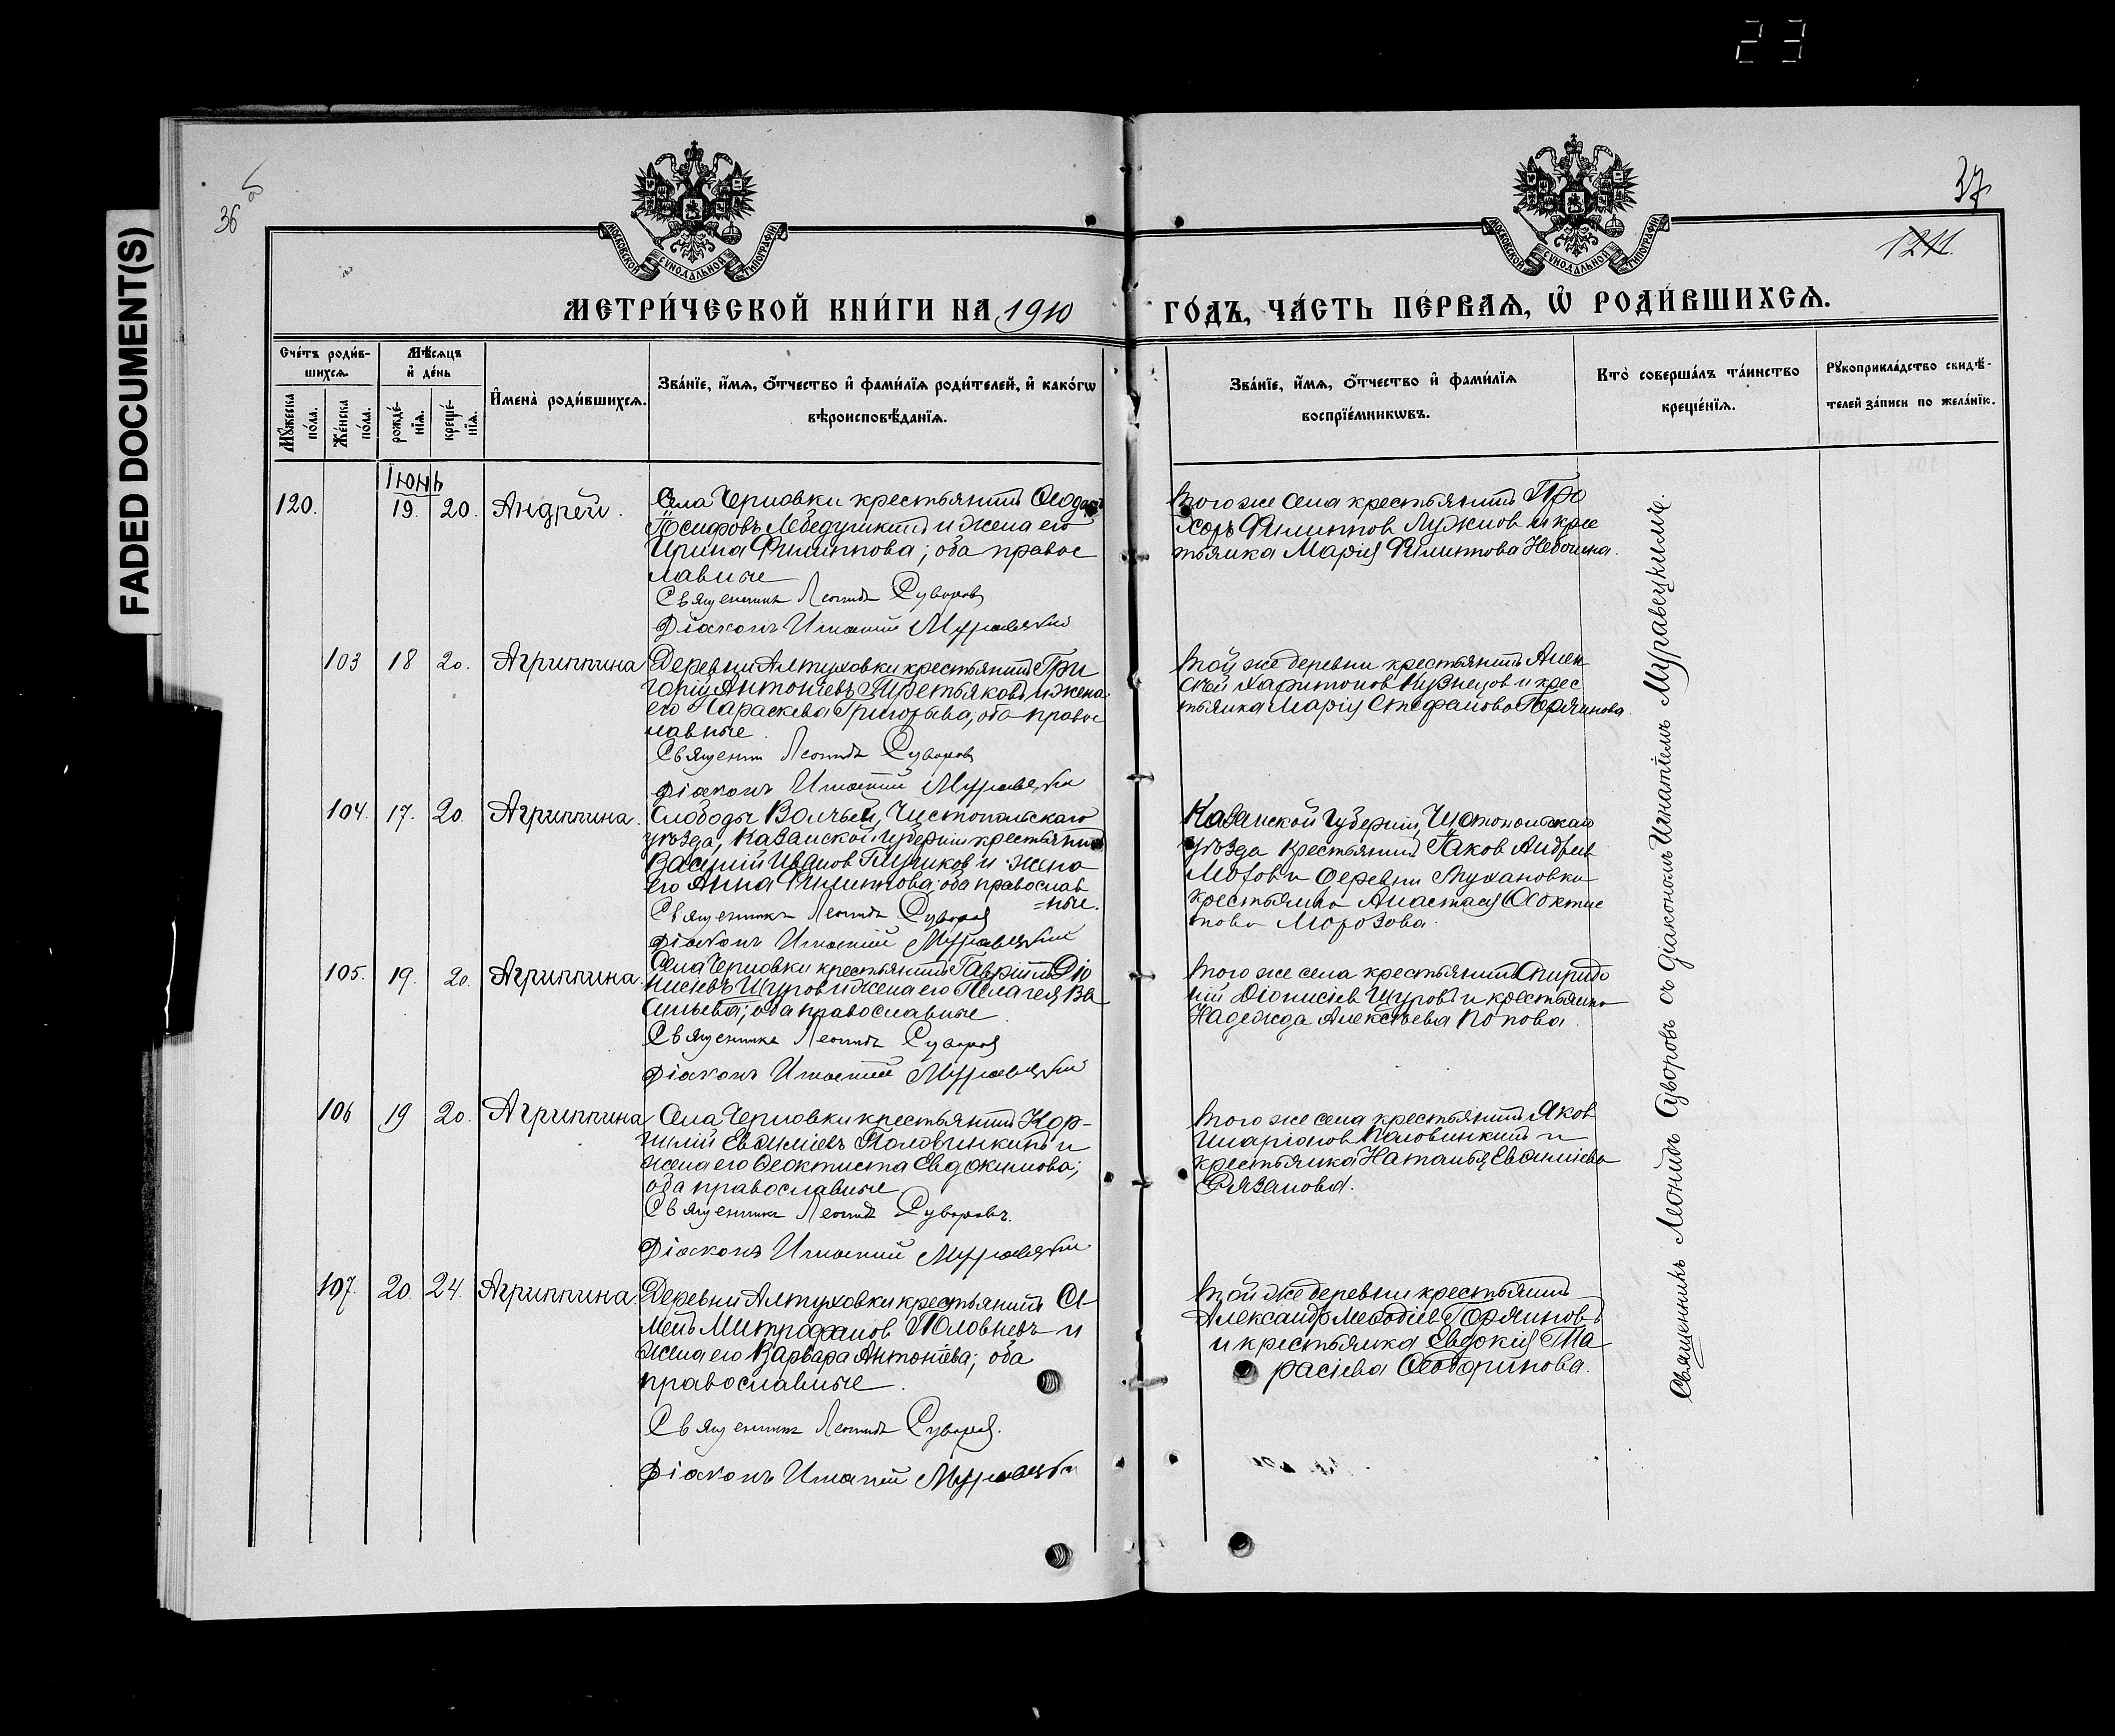 23
FADED DOCUMENT(S)
36 об
37
1211.
МОСКОВСКОЙ СѴНОДАЛЬНОЙ ТИПОГРАФІИ
МОСКОВСКОЙ СѴНОДАЛЬНОЙ ТИПОГРАФІИ
МЕТРИ́ЧЕСКОЙ КНИ́ГИ НА 1910 ГО́ДЪ, ЧА́СТЬ ПЕ́РВАЯ, Ѡ РОДИ́ВШИХСѦ.
Сче́тъ роди́в-
шихсѧ.
Мꙋ́жеска по́ла.
Же́нска по́ла.
Мѣ́сѧцъ
и҆ де́нь
рожде́-
нїѧ.
креще́-
нїѧ.
И҆мена̀ роди́вшихсѧ.
Зва́нїе, и҆́мѧ, ѻ҆́тчество и҆ фами́лїѧ роди́телей, и҆ како́гѡ
вѣроисповѣ́данїѧ.
Зва́нїе, и҆́мѧ, ѻ҆́тчество и҆ фами́лїѧ
воспрїе́мникѡвъ.
Кто̀ соверша́лъ та́инство
креще́нїѧ.
Рꙋкоприкла́дство свидѣ́-
телей за́писи по жела́нїю.
Іюнь
120. 19. 20. Андрей.
Села Черновки крестьянинъ
Іосифовъ Лебедушкинъ и жена его
Ирина Филиппова; оба правос
лавные
Священникъ Леонидъ Суворовъ
Діаконъ Игнатий Муравецкий
Того же села крестьянинъ Про
хоръ Филиппов Лужнов и крес
тьянка Марія Филиппова
103 18 20. Агриппина
Деревни Алтуховки крестьянинъ Гри
горій Антоніевъ Третьяковъ и жена
его Параскева Григорьева; оба правос
лавные.
Священник Леонидъ Суворовъ
Діаконъ Игнатий Муравецкий
Той же деревни крестьянинъ Алек
сѣй Харитонов Кузнецов и крес
тьянка Марія Стефанова Горяинова.
104. 17. 20. Агриппина.
Слободы Волчьей, Чистопольскаго
уѣзда, Казанской губерніи крестьянинъ
Василій Иванов и жена
его Анна Филиппова; оба православ
=ные.
Священникъ Леонидъ Суворовъ
Діаконъ Игнатий Муравецкий
Казанской Губерніи, Чистопольскаго
уѣзда крестьянинъ Іаков Андреев
и деревни Мухановки
крестьянка Анастасія Феоктис
това Морозова.
105. 19. 20. Агриппина.
Села Черновки крестьянинъ Гавріилъ Діо
нисіевъ Щуров и жена его Пелагея Ва
сильева; оба православные.
Священникъ Леонидъ Суворовъ
Діаконъ Игнатий Муравецкий
Того же села крестьянинъ Спиридо
ній Діонисіев Щуровъ и крестьянка
Надежда Алексѣева Попова.
106 19 20. Агриппина
Села Черновки крестьянинъ Кор-
нилій Евѳиміевъ Половинкинъ и
жена его Ѳеоктиста Евдокимова;
оба православные
Священникъ Леонидъ Суворовъ.
Діаконъ Игнатий Муравецкий
Того же села крестьянинъ Яков
Иларіонов Половинкинъ и
крестьянка Наталья Евѳиміева
Рязанова.
107. 20. 24. Агриппина.
Деревни Алтуховки крестьянинъ Се-
менъ Митрофанов Половневъ и
жена его Варвара Антоніева; оба
православные.
Священникъ Леонидъ Суворовъ.
Діаконъ Игнатий Муравецкий
Той же деревни крестьянинъ
Александр Меѳодіев Горяиновъ
и крестьянка Евдокія Та
расіева
Священникъ Леонидъ Суворовъ съ діакономъ Игнатіемъ Муравецкимъ.